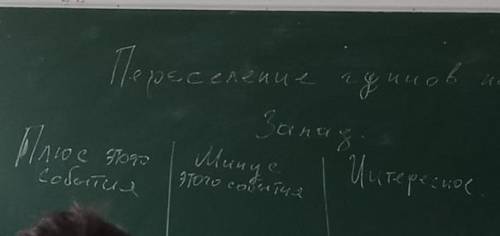 Переселение гуннов на
Запад.
Плюс этого
события
Минус
этого события
Интересное.